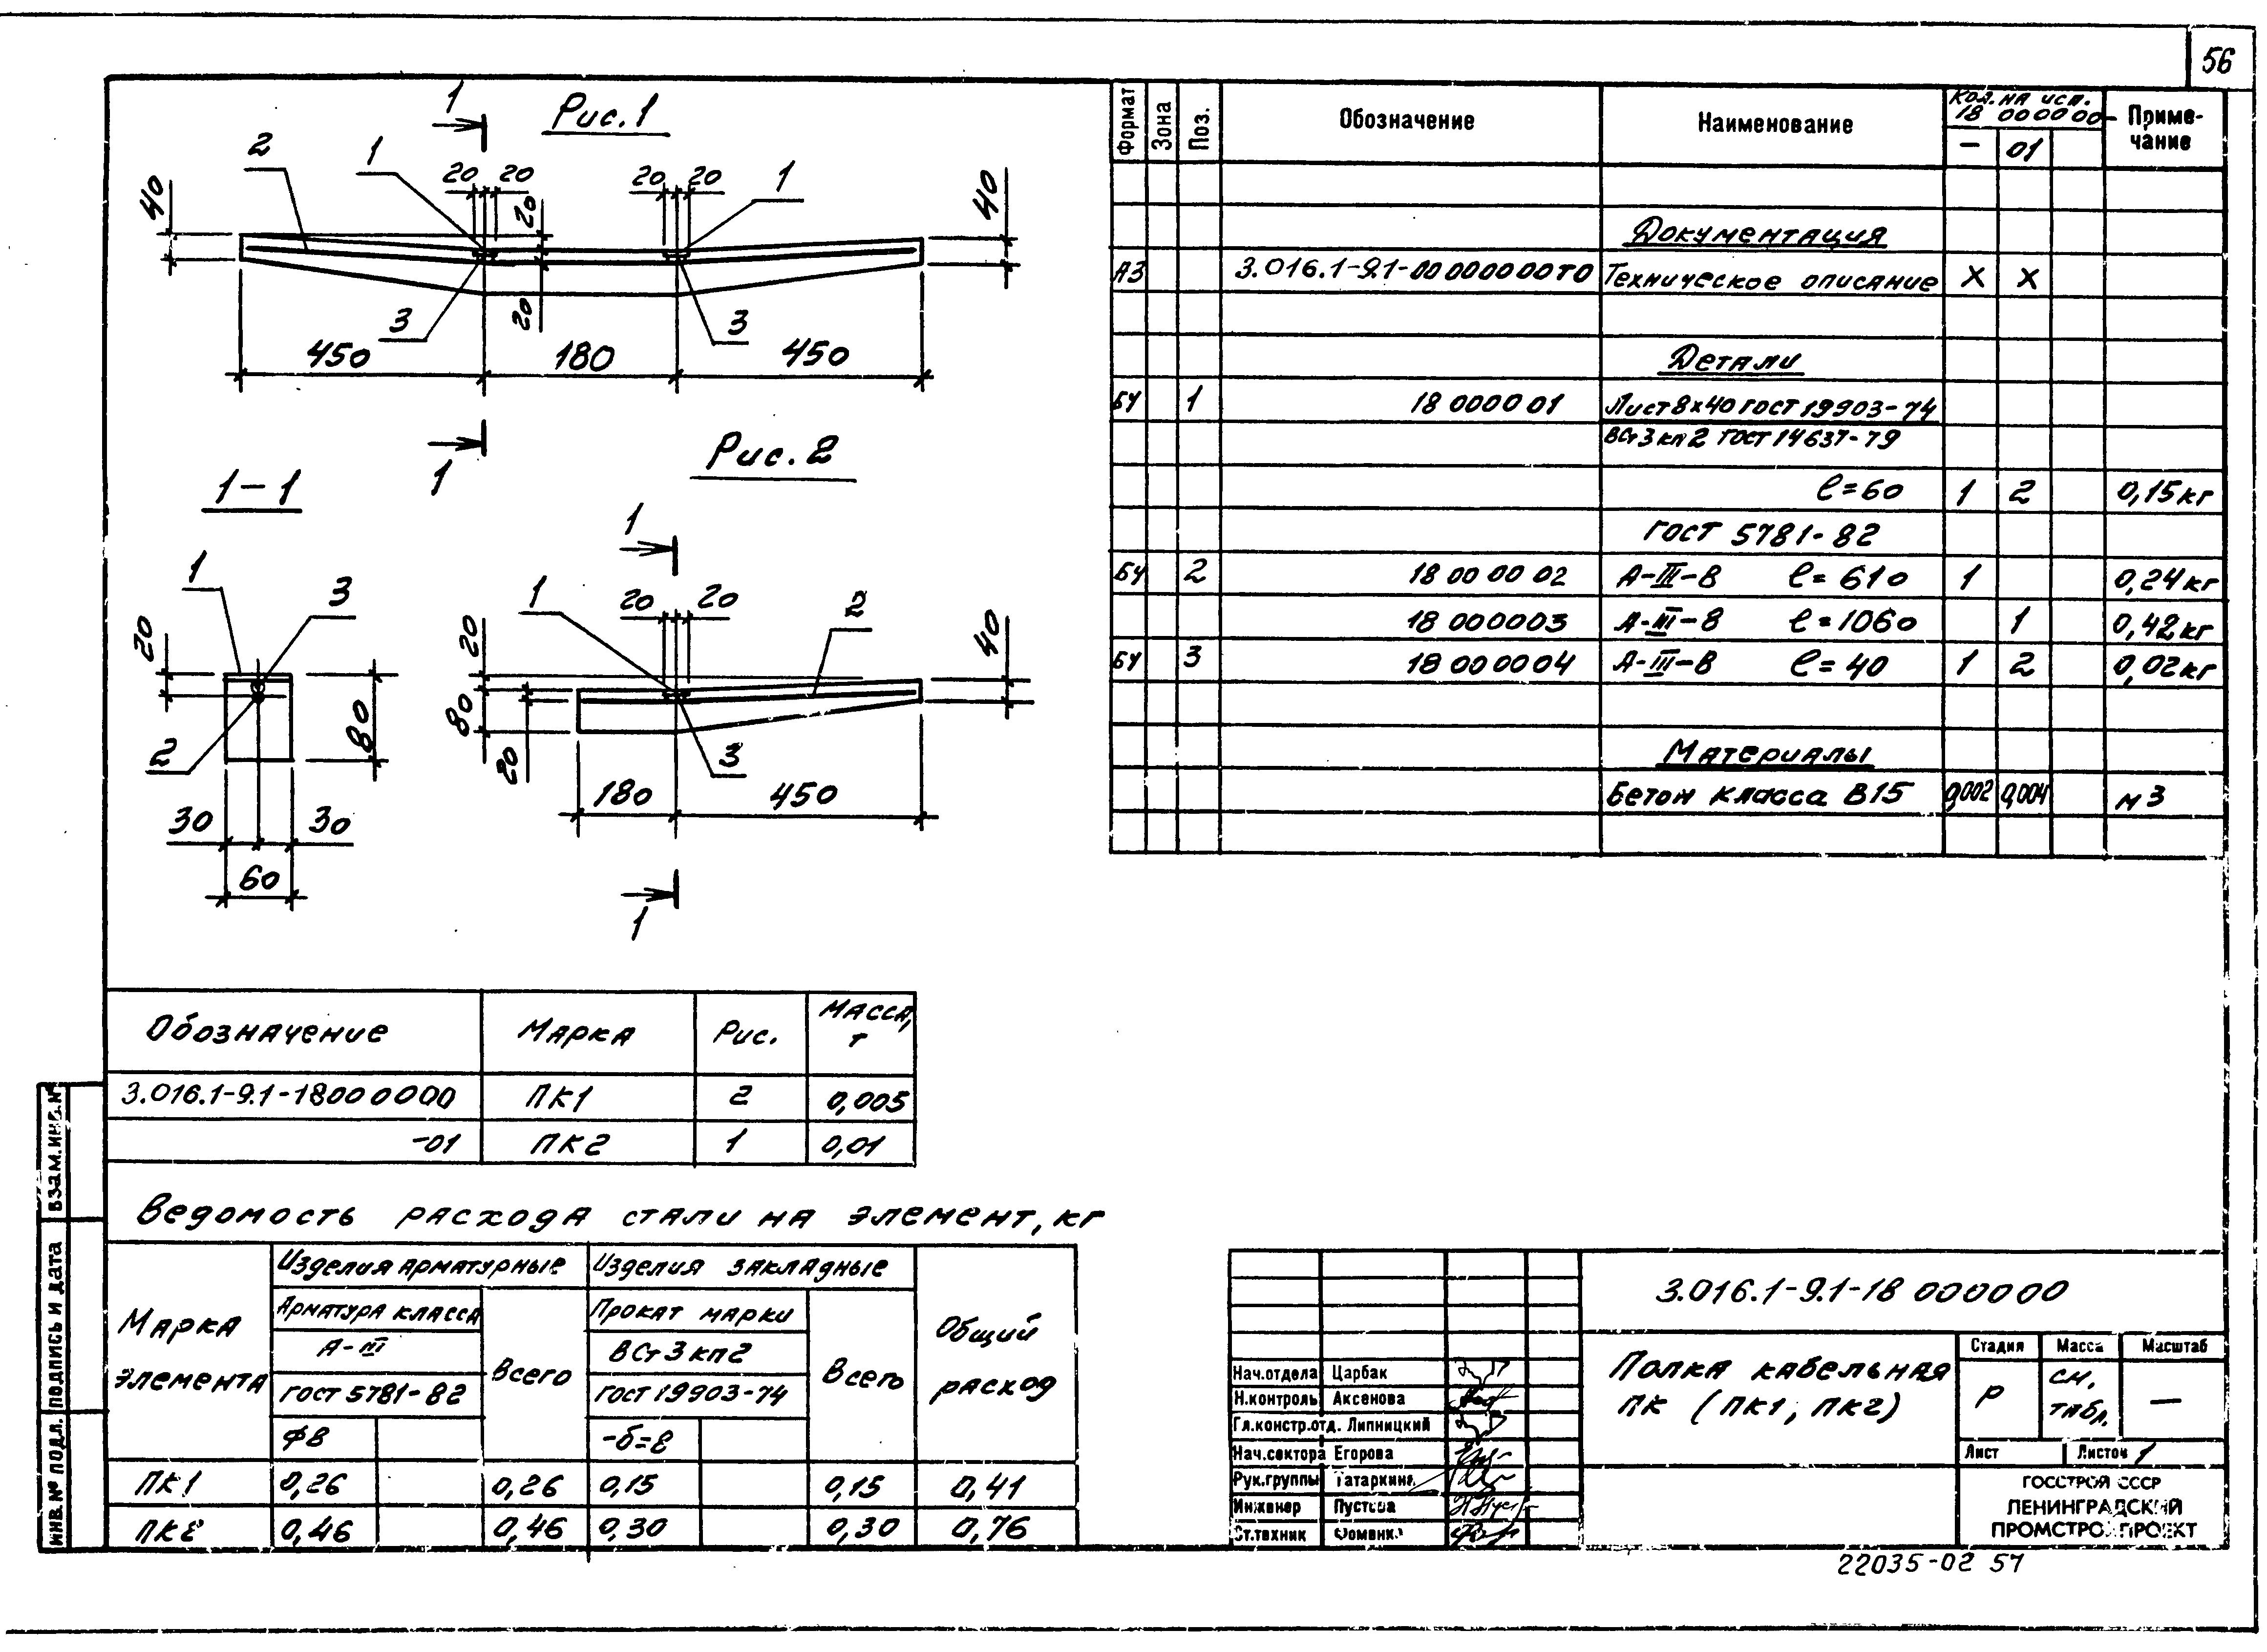 56
Рис. 1
1
2
1
20 20
20 20
1
40
20
40
3
20
3
450
180
450
1
Рис. 2
1-1
1
3
20
2
80
30 30
60
1
1
20 20
2
20
80
20
40
3
180
450
1
Формат Зона Поз. Обозначение Наименование Кол. на исп. 18 000000- Приме-чание
- 01
Документация
А3 3.016.1-9.1-00 000000ТО Техническое описание X X
Детали
БЧ 1 18 000001 Лист 8х40 ГОСТ 19903-74
ВСт3кп2 ГОСТ 14637-79
ℓ=60 1 2 0,15кг
ГОСТ 5781-82
БЧ 2 18 000002 А-III-8 ℓ=610 1 0,24кг
18 000003 А-III-8 ℓ=1060 1 0,42кг
БЧ 3 18 000004 А-III-8 ℓ=40 1 2 0,02кг
Материалы
Бетон класса В15 0,002 0,004 м3
Обозначение Марка Рис. Масса, т
3.016.1-9.1-18000000 ПК1 2 0,005
-01 ПК2 1 0,01
Ведомость расхода стали на элемент, кг
Марка элемента Изделия арматурные Изделия закладные Общий расход
Арматура класса Всего Прокат марки Всего
А-III ВСт3кп2
ГОСТ 5781-82 ГОСТ 19903-74
ф8 -б=8
ПК1 0,26 0,26 0,15 0,15 0,41
ПК2 0,46 0,46 0,30 0,30 0,76
Взам.инв.№
Подпись и дата
Инв.№ подл.
3.016.1-9.1-18 000000
Нач.отдела Царбак
Н.контроль Аксенова
Гл.констр.отд. Липницкий
Нач.сектора Егорова
Рук.группы Татаркина
Инженер Пустова
Ст.техник Фоменко
Полка кабельная
ПК (ПК1, ПК2)
Стадия Масса Масштаб
Р см. табл. —
Лист Листов 1
ГОССТРОЙ СССР
ЛЕНИНГРАДСКИЙ
ПРОМСТРОЙПРОЕКТ
22035-02 57